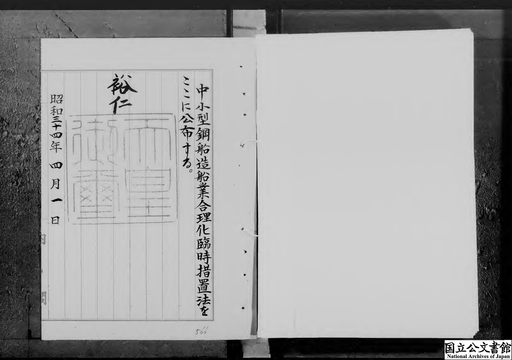 中小型鋼船造船業合理化臨時措置法を
ここに公布する。
裕仁
天皇
御璽
昭和三十四年四月一日
国立公文書館
National Archives of Japan